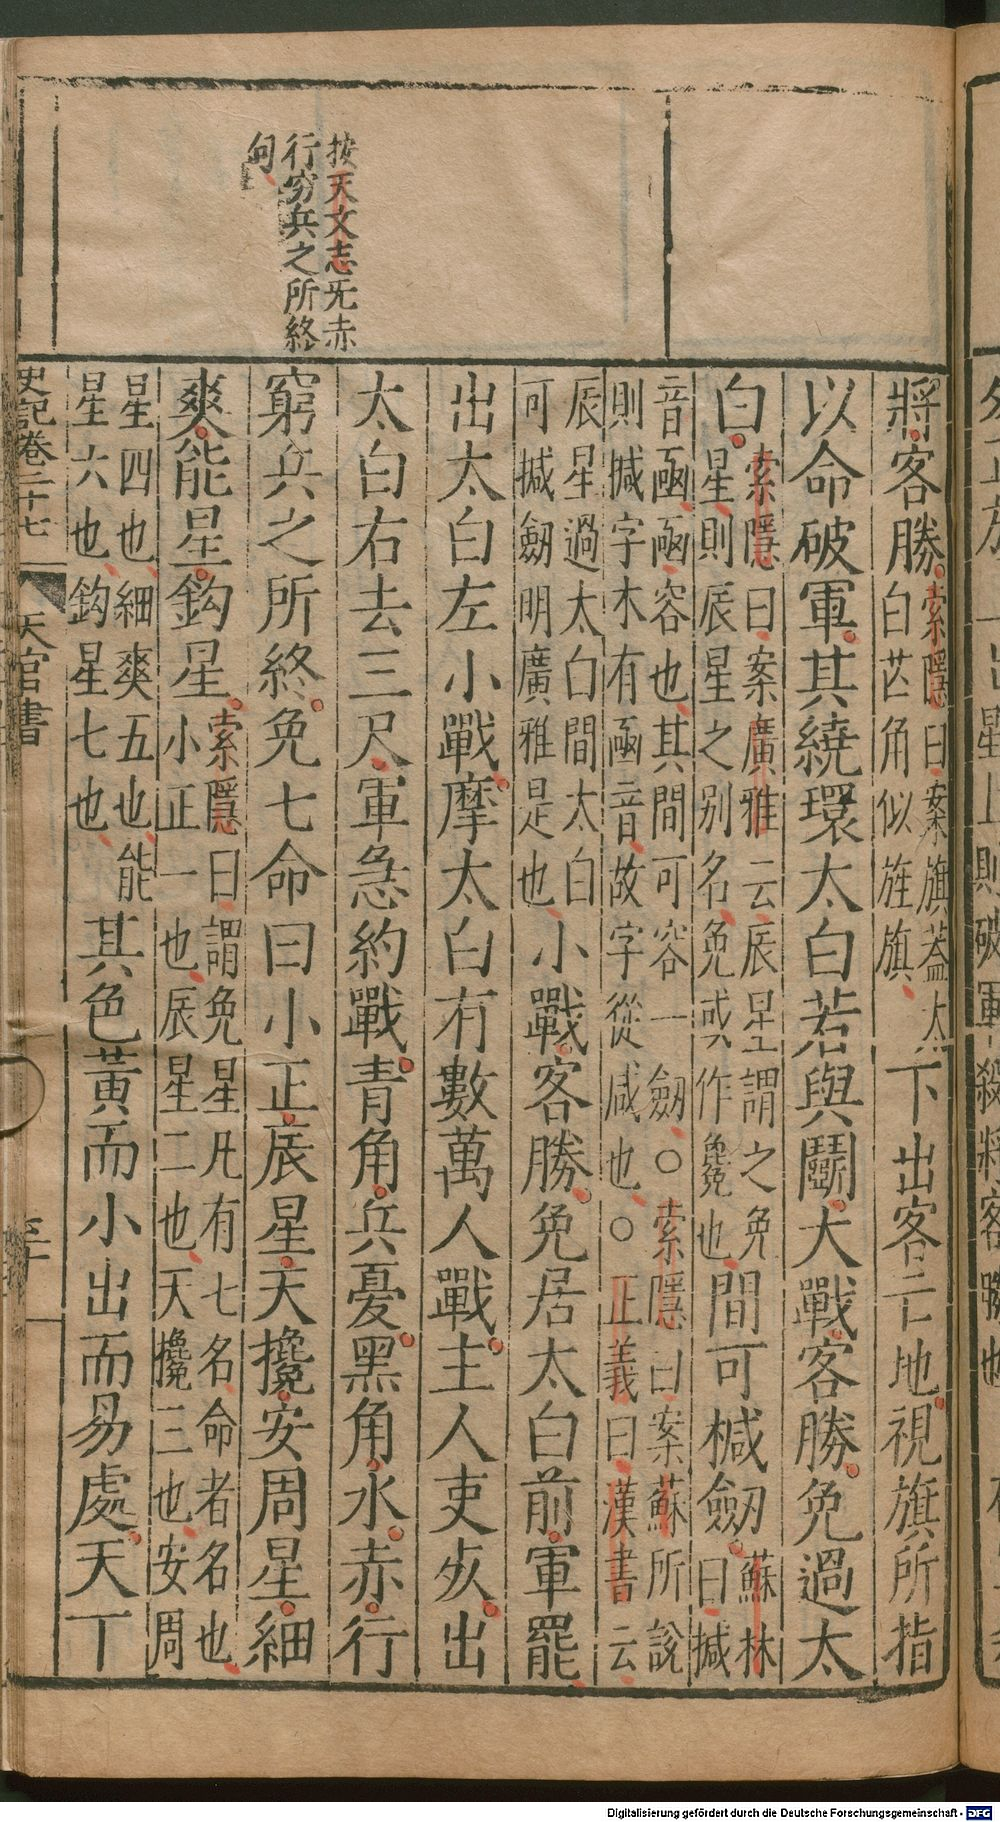 按天文志旡赤
行穷兵之所終
句
將客勝索隱曰案旗蓋太白芒角似旌旗下出客亡地視旗所指
以命破軍其繞環太白若與鬭大戰客勝免過太
白索隱曰案廣雅云辰星謂之免星則辰星之别名免或作毚也間可椷劔蘇林曰搣
音函函容也其間可容一劔○索隱曰案蘇所說則搣字木有函音故字從咸也○正義曰漢書云
辰星過太白間太白可搣劔明廣雅是也小戰客勝免居太白前軍罷
出太白左小戰摩太白有數萬人戰主人吏死出
太白右去三尺軍急約戰青角兵憂黑角水赤行
窮兵之所終免七命曰小正辰星天攙安周星細
爽能星鈎星索隱曰謂免星凡有七名命者名也小正一也辰星二也天攙三也安周
星四也細爽五也能星六也鈎星七也其色黃而小出而易處天下
史記卷二十七 天官書
Digitalisierung gefördert durch die Deutsche Forschungsgemeinschaft - DFG